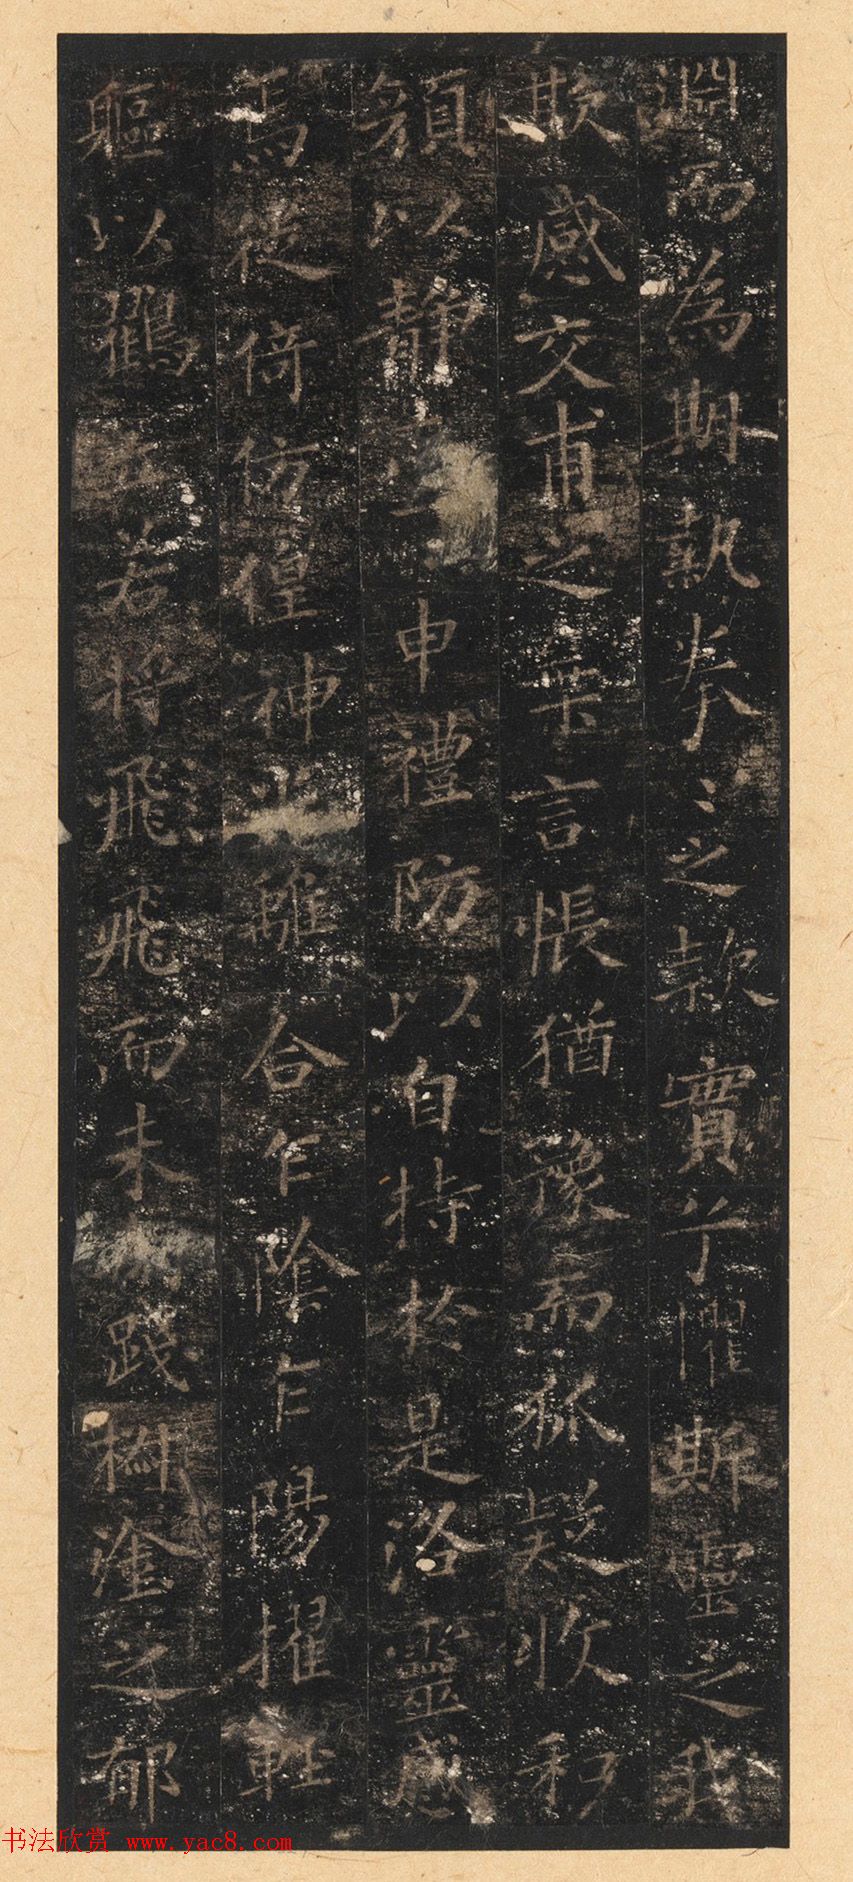 淵而為期執拳〻之款實兮懼斯靈之我
欺感交甫之棄言悵猶豫而狐疑收和
顏以靜志申禮防以自持於是洛靈感
焉徙倚仿偟神光離合乍陰乍陽擢輕
軀以鶴立若將飛飛而未翔踐椒塗之郁
书法欣赏 www.yac8.com